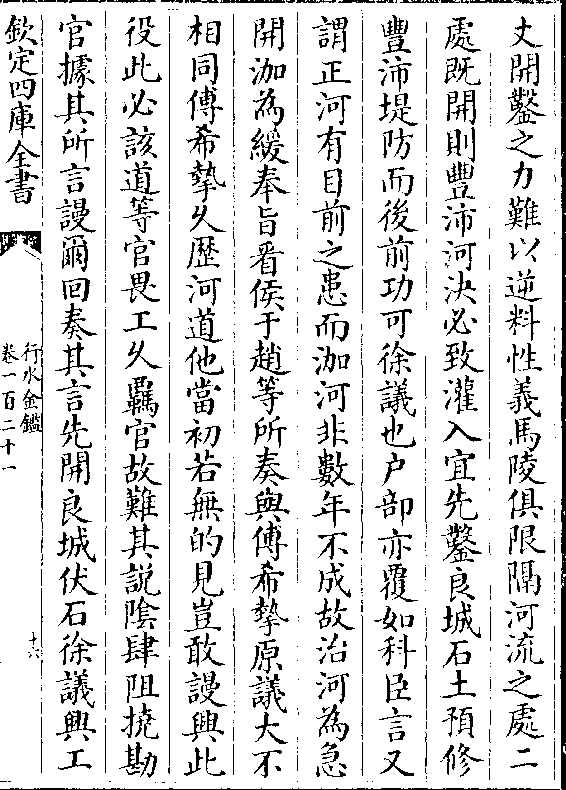 丈開鑿之力難以逆料性義馬陵俱限隔河流之處二
處既開則豐沛河決必致灌入宜先鑿良城石土預修
豐沛堤防而後前功可徐議也戶部亦覆如科臣言又
謂正河有目前之患而泇河非數年不成故治河為急
開泇為緩奉旨看侯于趙等所奏與傅希摯原議大不
相同傅希摯久歷河道他當初若無的見豈敢謾興此
役此必該道等官畏工久羈官故難其說陰肆阻撓勘
官據其所言謾爾回奏其言先開良城伏石徐議興工
欽定四庫全書
行水金鑑
卷一百二十一
十六